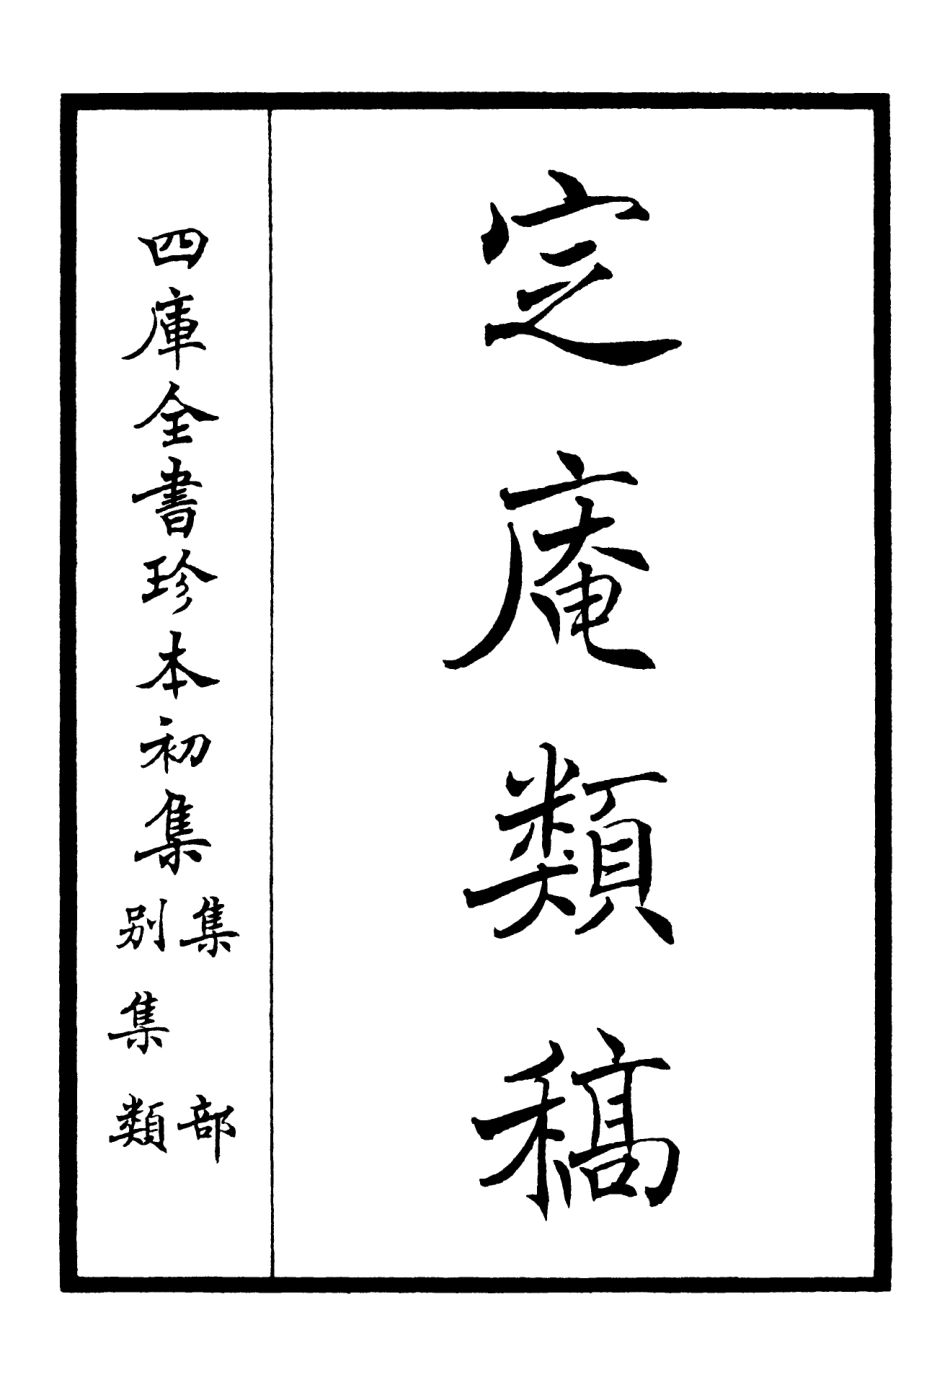 定庵類稿
四庫全書珍本初集
集部
別集類